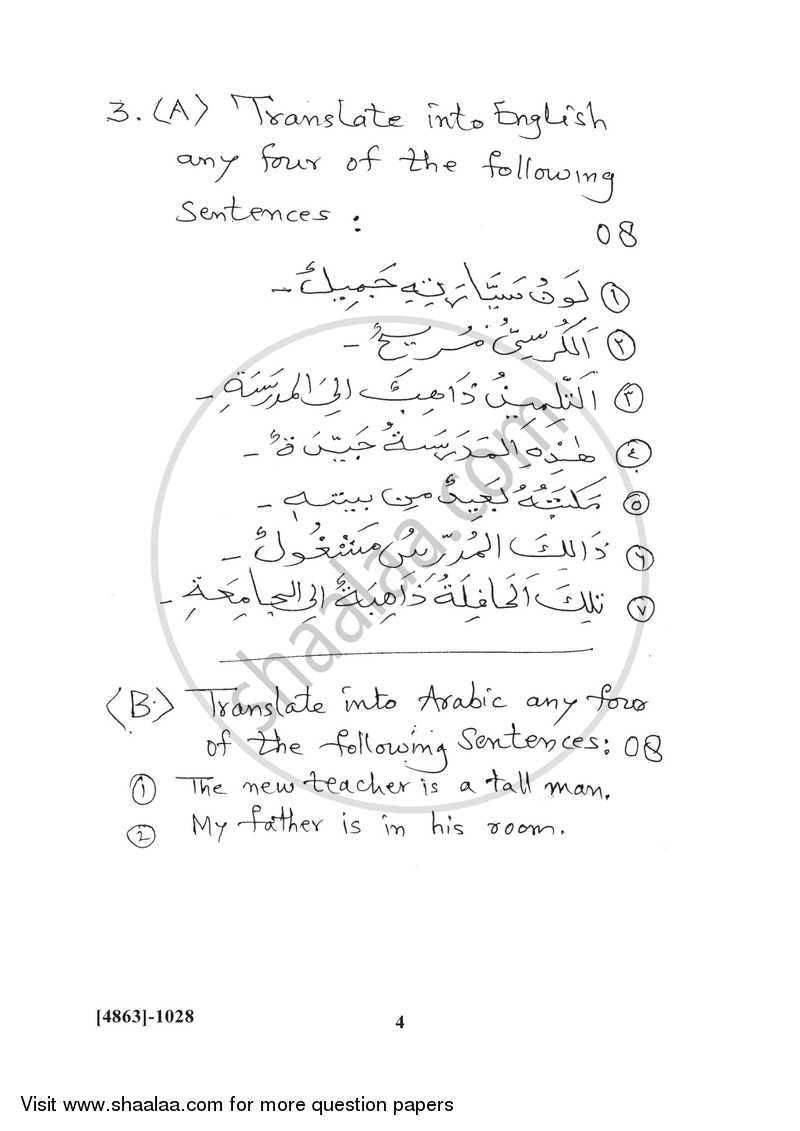 3. (A) Translate into English
any four of the following
Sentences :
08
١ لَونُ سَيَّارَتِهِ جَمِيلٌ -
٢ اَلكُرسِيُّ مُرِيحٌ -
٣ اَلتِّلمِيذُ ذَاهِبٌ اِلىَ المَدرَسَةِ -
٤ هٰذِهِ اَلمَدرَسَةُ جَيِّدَةٌ -
٥ مَكتَبَتُهُ بَعِيدٌ مِن بيتهِ -
٦ ذَالِكَ المُدَرِّسُ مَشغُولٌ -
٧ تِلكَ اَلحَافِلَةُ ذَاهِبَةٌ اِلى الجَامِعَةِ -
(B) Translate into Arabic any four
of the following Sentences: 08
1 The new teacher is a tall man.
2 My father is in his room.
shaalaa.com
[4863]-1028
4
Visit www.shaalaa.com for more question papers